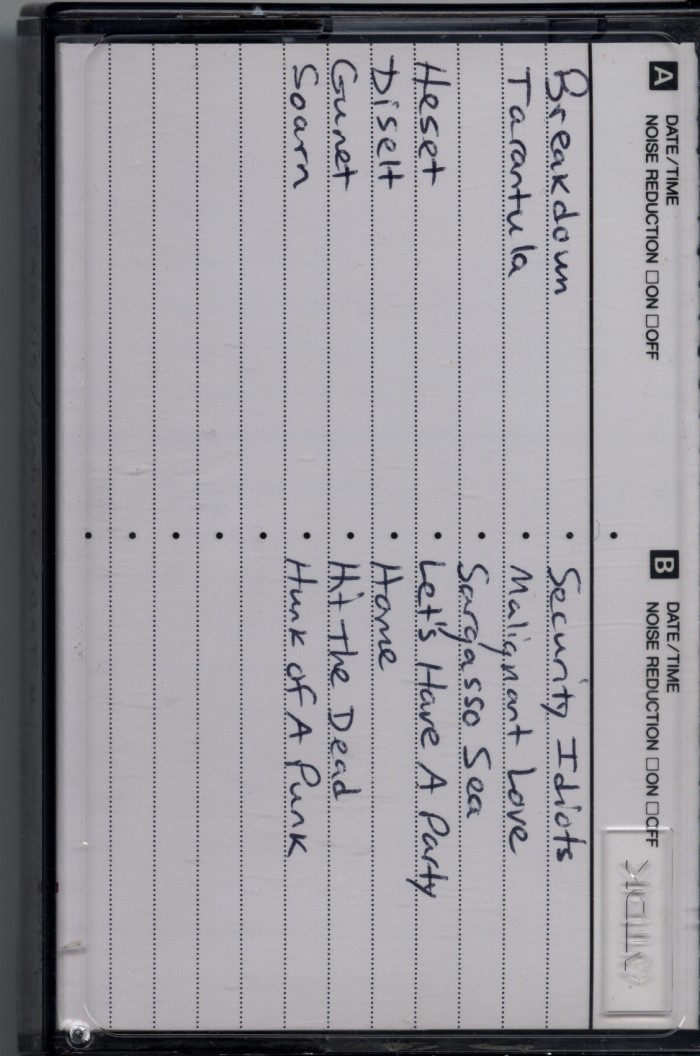 A DATE/TIME
NOISE REDUCTION □ON □OFF
B DATE/TIME
NOISE REDUCTION □ON □OFF
TDK
Breakdown
Tarantula
Heset
Diselt
Gunet
Soarn
Security Idiots
Malignant Love
Sargasso Sea
Let's Have A Party
Home
Hit The Dead
Hunk of A Punk